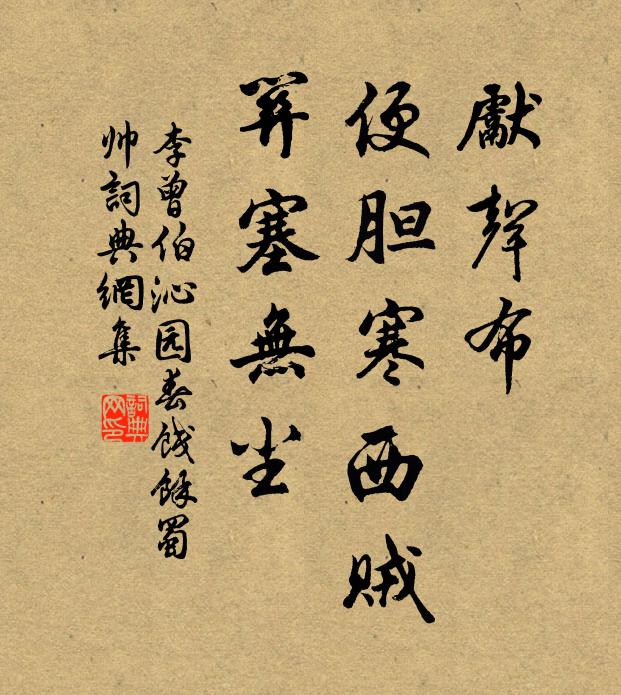 獻聲布
便胆寒西賊
笄塞無尘
李曾伯沁园春饯餘蜀
帅詞典網集
詞典网印